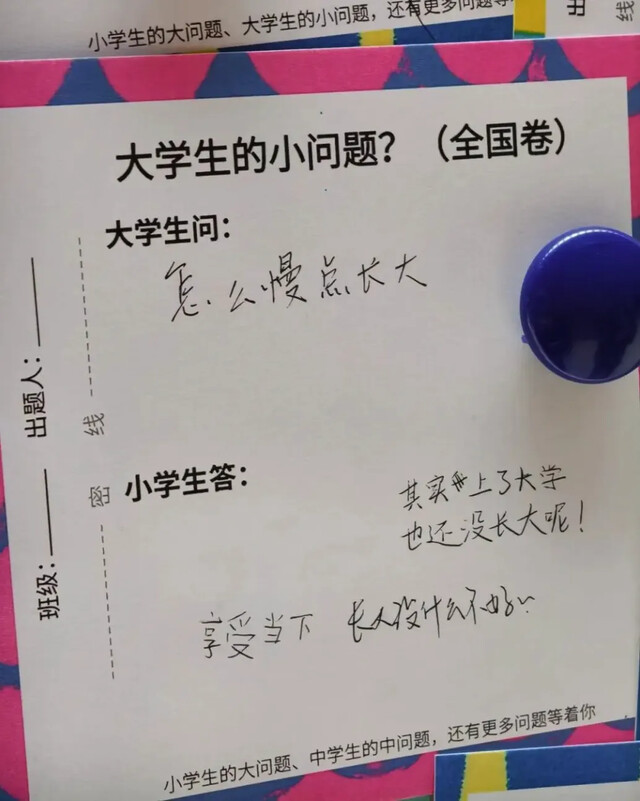 小学生的大问题、大学生的小问题，还有更多问题等
线
大学生的小问题？（全国卷）
大学生问：
怎么慢点长大
出题人：
班级：
密
线
小学生答：
其实上了大学
也还没长大呢！
享受当下 长大没什么不好
小学生的大问题、中学生的中问题，还有更多问题等着你